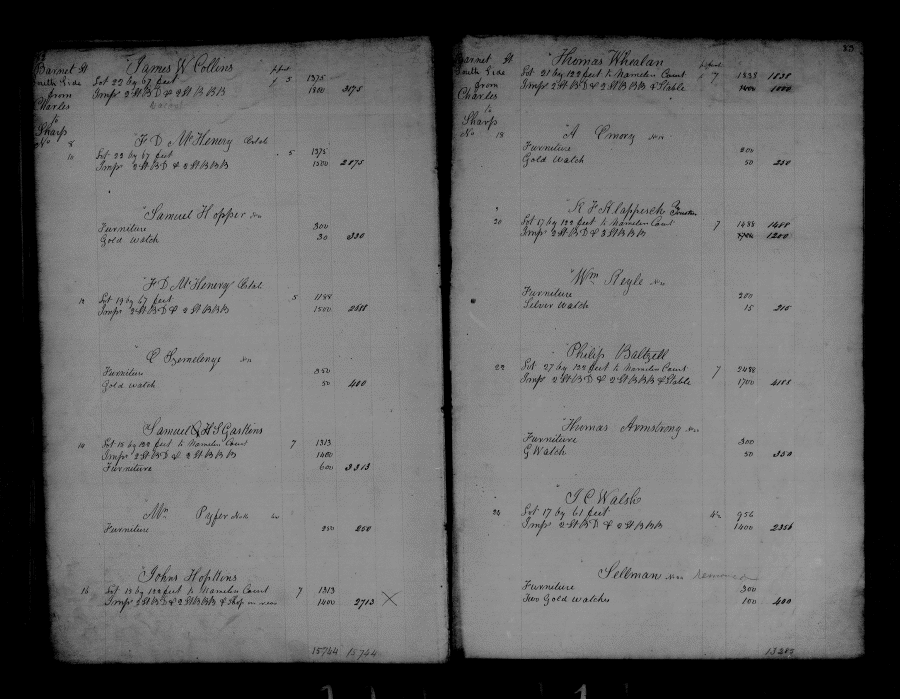 Barnet St
South Side
from
Charles
to
Sharp
No 8
James W Collins
Lot 22 by 67 feet 5 1375
Imps 2 St B D & 2 St B B B 1800 3175
F D McHenery
10 Lot 22 by 67 feet 5 1375
Imps 2 St B D & 2 St B B B 1500 2875
Samuel Hopper
Furniture 300
Gold Watch 30 330
F D McHenery
12 Lot 19 by 67 feet 5 1188
Imps 2 St B D & 2 St B B B 1500 2688
C Szemelenyi
Furniture 350
Gold Watch 50 400
Samuel & H S Gaskins
14 Lot 18 by 122 feet to Hamelin Court 7 1313
Imps 2 St B D & 2 St B B B 1400
Furniture 600 3313
Wm Pyfer
Furniture 250 250
Johns Hopkins
16 Lot 18 by 122 feet to Hamelin Court 7 1313
Imps 2 St B D & 2 St B B B & Shop in rear 1400 2713 X
15744 15744
Barnet St
South Side
from
Charles
to
Sharp
No 18
Thomas Whealan
Lot 21 by 122 feet to Hamelin Court 7 1838 1838
Imps 2 St B D & 2 St B B B & Stable 1400
A Emory
Furniture 200
Gold Watch 50 250
20 Lot 17 by 122 feet to Hamelin Court 7 1488 1488
Imps 2 St B D & 2 St B B B 1200
Wm Reyle
Furniture 200
Silver Watch 15 215
Philip Baltzell
22 Lot 27 by 122 feet to Hamelin Court 7 2488
Imps 2 St B D & 2 St B B B & Stable 1700 4188
Thomas Armstrong
Furniture 300
G Watch 50 350
J C Walsh
24 Lot 17 by 61 feet 956
Imps 2 St B D & 2 St B B B 1400 2356
Sellman removed
Furniture 300
Two Gold Watches 100 400